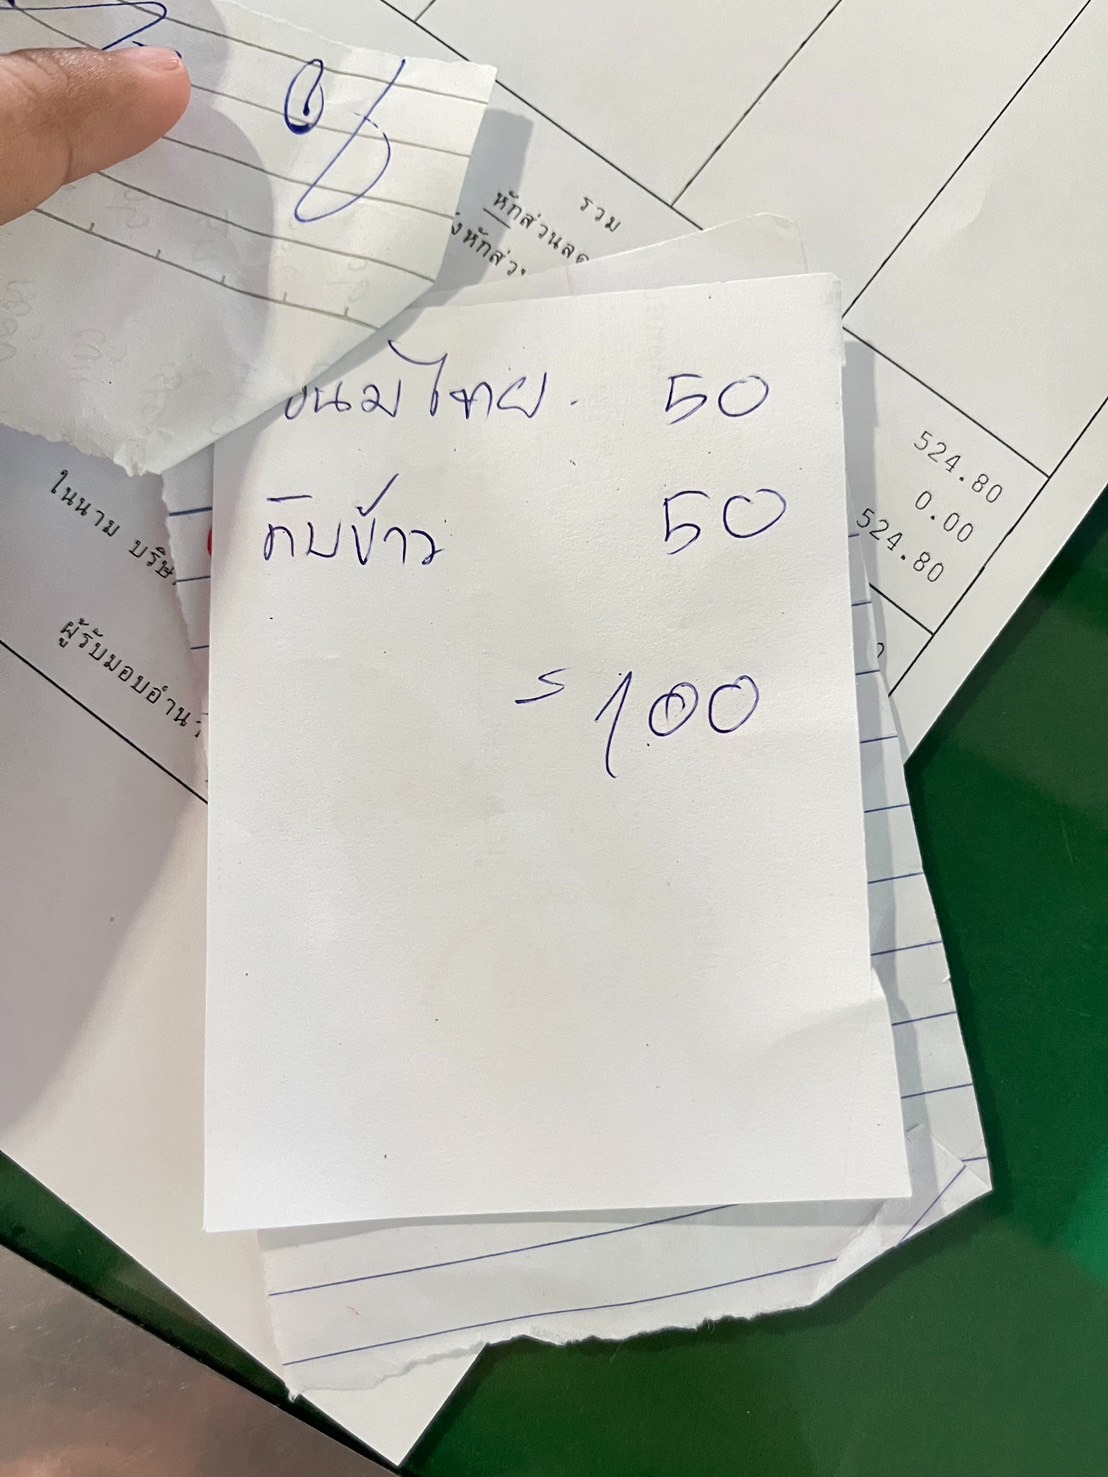 รวม
หักส่วนลด
ขนมไทย. 50
กับข้าว 50
= 100
524.80
0.00
524.80
ในนาม บริษ
ผู้รับมอบอำนา